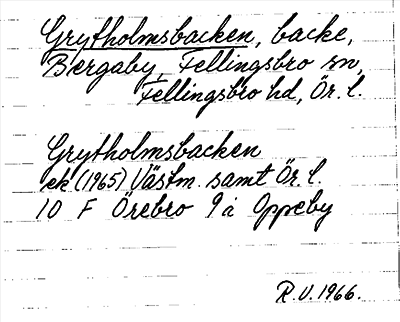 Grytholmsbacken, backe,
Bergaby, Fellingsbro sn,
Fellingsbro hd, Ör. l.
Grytholmsbacken
ek (1965) Västm. samt Ör. l.
10 F Örebro 9 i Oppeby
R.V. 1966.